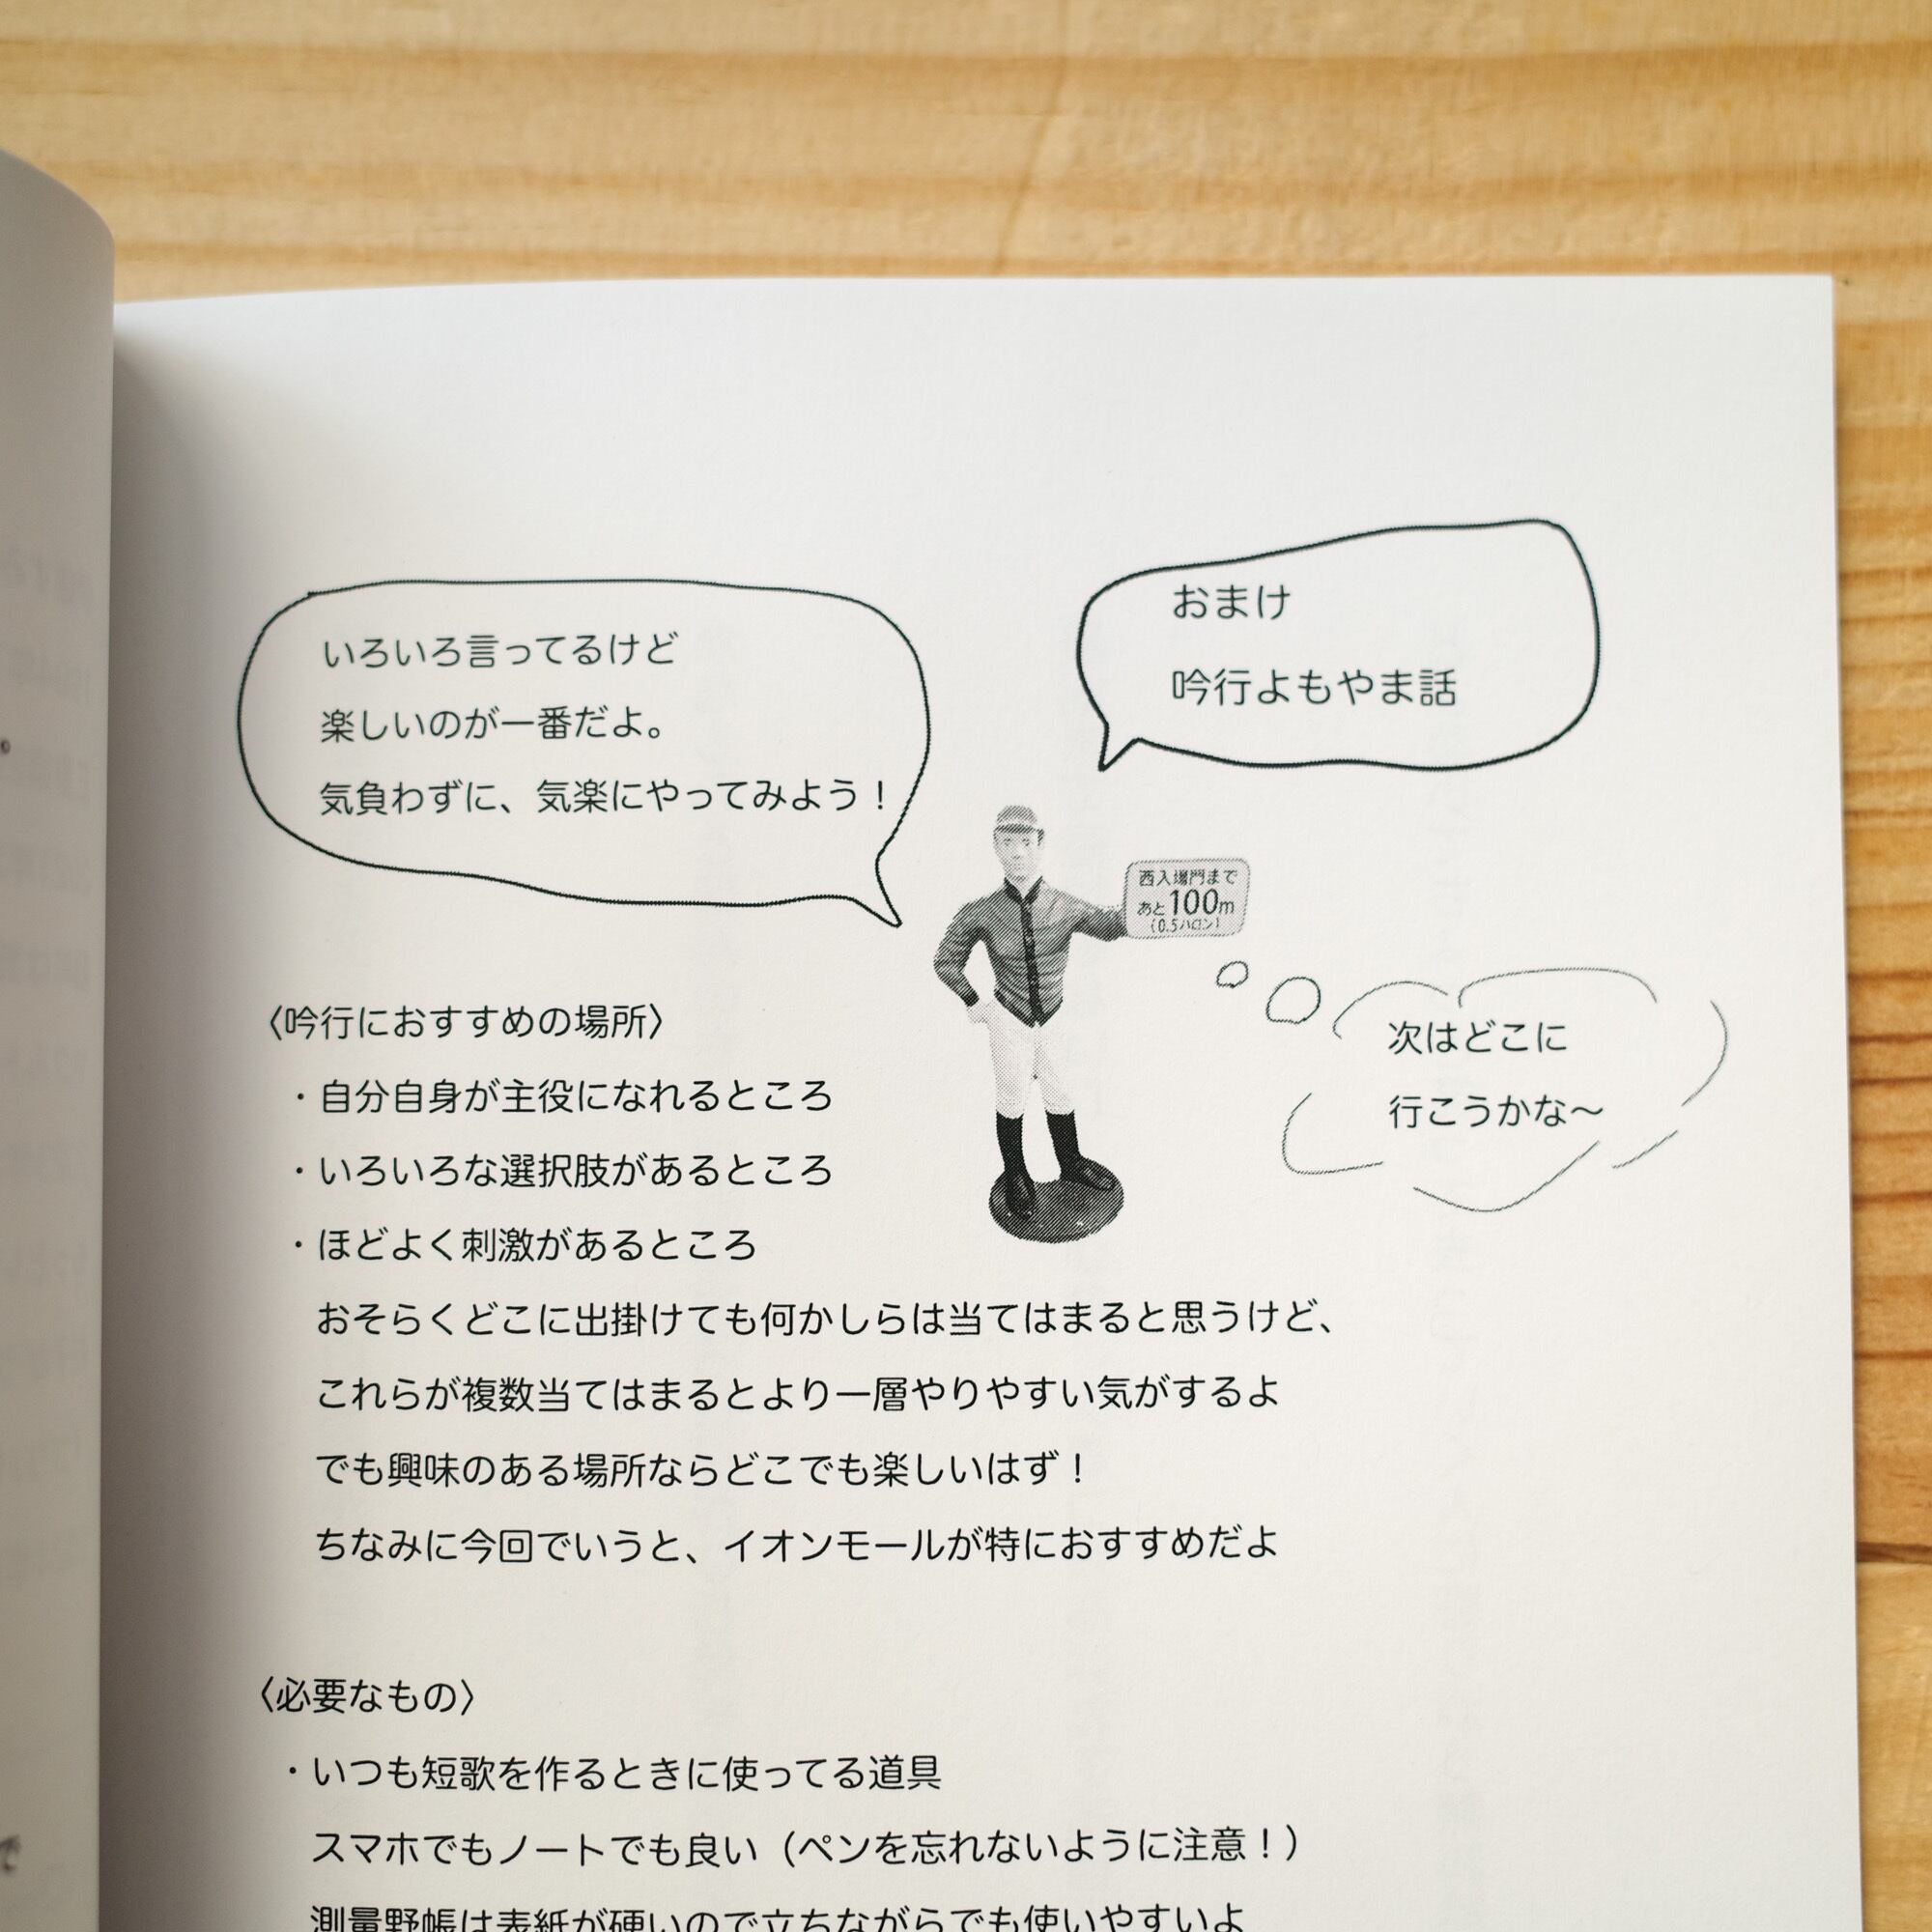 おまけ
吟行よもやま話
いろいろ言ってるけど
楽しいのが一番だよ。
気負わずに、気楽にやってみよう！
西入場門まで
あと100m
（0.5ハロン）
次はどこに
行こうかな〜
〈吟行におすすめの場所〉
・自分自身が主役になれるところ
・いろいろな選択肢があるところ
・ほどよく刺激があるところ
おそらくどこに出掛けても何かしらは当てはまると思うけど、
これらが複数当てはまるとより一層やりやすい気がするよ
でも興味のある場所ならどこでも楽しいはず！
ちなみに今回でいうと、イオンモールが特におすすめだよ
〈必要なもの〉
・いつも短歌を作るときに使ってる道具
スマホでもノートでも良い（ペンを忘れないように注意！）
測量野帳は表紙が硬いので立ちながらでも使いやすいよ